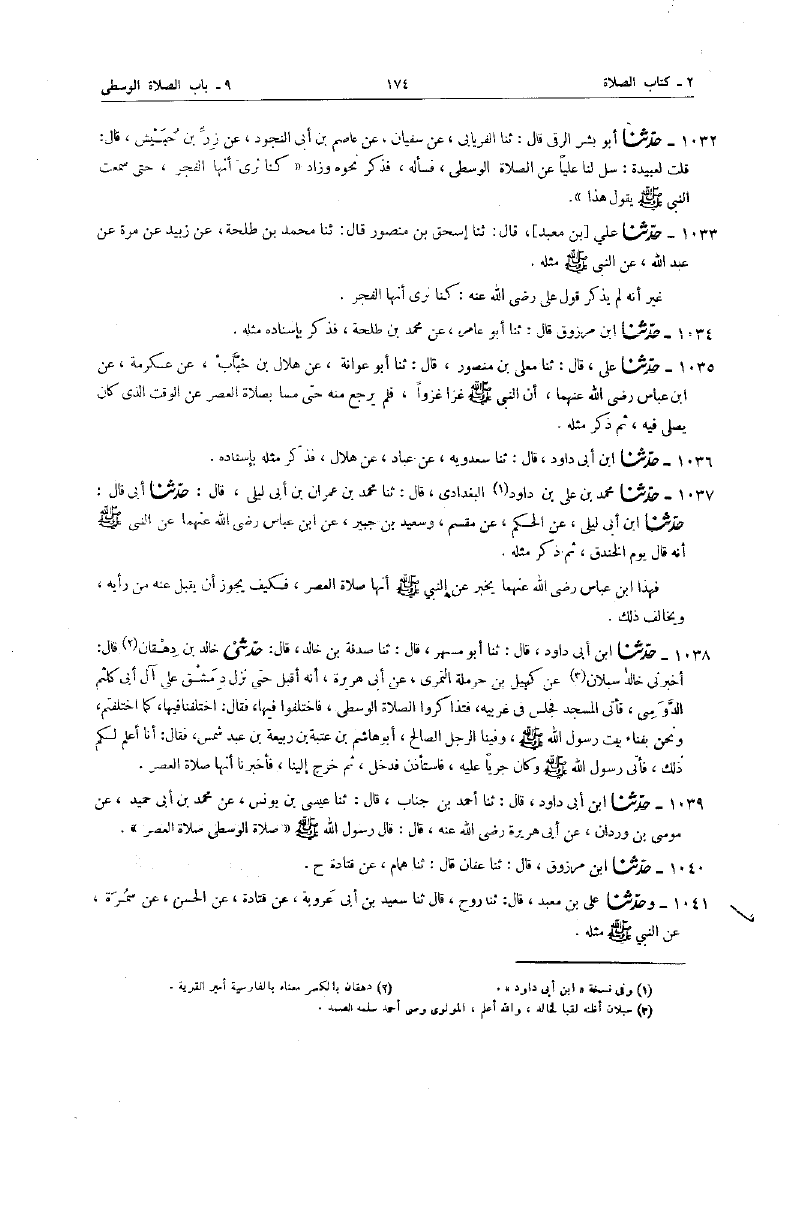 ٢ - كتاب الصلاة ١٧٤ ٩ - باب الصلاة الوسطى
١٠٣٢ - حدّثنا أبو بشر الرقى قال : ثنا الفريابى ، عن سفيان ، عن عاصم بن أبى النجود ، عن زرّ بن حُبَيْش ، قال :
قلت لعبيدة : سل لنا علياً عن الصلاة الوسطى ، فسأله ، فذكر نحوه وزاد « كنا نرى أنها الفجر ، حتى سمعت
النبى ﷺ يقول هذا » .
١٠٣٣ - حدّثنا علي [بن معبد] ، قال : ثنا إسحق بن منصور قال : ثنا محمد بن طلحة ، عن زبيد عن مرة عن
عبد الله ، عن النبى ﷺ مثله .
غير أنه لم يذكر قول على رضى الله عنه : كنا نرى أنها الفجر .
١٠٣٤ - حدّثنا ابن مرزوق قال : ثنا أبو عامر ، عن محمد بن طلحة ، فذكر بإسناده مثله .
١٠٣٥ - حدّثنا على ، قال : ثنا معلى بن منصور ، قال : ثنا أبو عوانة ، عن هلال بن خبَّاب ، عن عكرمة ، عن
ابن عباس رضى الله عنهما ، أن النبى ﷺ غزا غزواً ، فلم يرجع منه حتّى مسا بصلاة العصر عن الوقت الذى كان
يصلى فيه ، ثم ذكر مثله .
١٠٣٦ - حدّثنا ابن أبى داود ، قال : ثنا سعدويه ، عن عباد ، عن هلال ، فذكر مثله بإسناده .
١٠٣٧ - حدّثنا محمد بن على بن داود(١) البغدادى ، قال : ثنا محمد بن عمران بن أبى ليلى ، قال : حدّثنا أبى قال :
حدّثنا ابن أبى ليلى ، عن الحكم ، عن مقسم ، وسعيد بن جبير ، عن ابن عباس رضى الله عنهما عن النبى ﷺ
أنه قال يوم الخندق ، ثم ذكر مثله .
فهذا ابن عباس رضى الله عنهما يخبر عن النبى ﷺ أنها صلاة العصر ، فكيف يجوز أن يقبل عنه من رأيه ،
ويخالف ذلك .
١٠٣٨ - حدّثنا ابن أبى داود ، قال : ثنا أبو مسهر ، قال : ثنا صدقة بن خالد ، قال : حدّثنى خالد بن دِهْقان(٢) قال :
أخبرنى خالد سبلان(٣) عن كهيل بن حرملة النمرى ، عن أبى هريرة ، أنه أقبل حتى نزل دِمشْق على آل أبى كلثم
الدَّوْسِى ، فأتى المسجد فجلس فى غربيه ، فتذاكروا الصلاة الوسطى ، فاختلفوا فيها ، فقال : اختلفنا فيها ، كما اختلفتم ،
ونحن بفناء بيت رسول الله ﷺ ، وفينا الرجل الصالح ، أبو هاشم بن عتبة بن ربيعة بن عبد شمس ، فقال : أنا أعلم لكم
ذلك ، فأتى رسول الله ﷺ وكان جرياً عليه ، فاستأذن فدخل ، ثم خرج إلينا ، فأخبرنا أنها صلاة العصر .
١٠٣٩ - حدّثنا ابن أبى داود ، قال : ثنا أحمد بن جناب ، قال : ثنا عيسى بن يونس ، عن محمد بن أبى حميد ، عن
موسى بن وردان ، عن أبى هريرة رضى الله عنه ، قال : قال رسول الله ﷺ « صلاة الوسطى صلاة العصر » .
١٠٤٠ - حدّثنا ابن مرزوق ، قال : ثنا عفان قال : ثنا همام ، عن قتادة ح .
١٠٤١ - وحدّثنا على بن معبد ، قال : ثنا روح ، قال ثنا سعيد بن أبى عَروبة ، عن قتادة ، عن الحسن ، عن سَمُرَة ،
عن النبي ﷺ مثله .
(١) وفى نسخة « ابن أبى داود » . (٢) دهقان بالكسر معناه بالفارسية أمير القرية .
(٣) سبلان أظنه لقبا لخاله ، والله أعلم ، المولوى وصى أحمد سلمه الصمد .